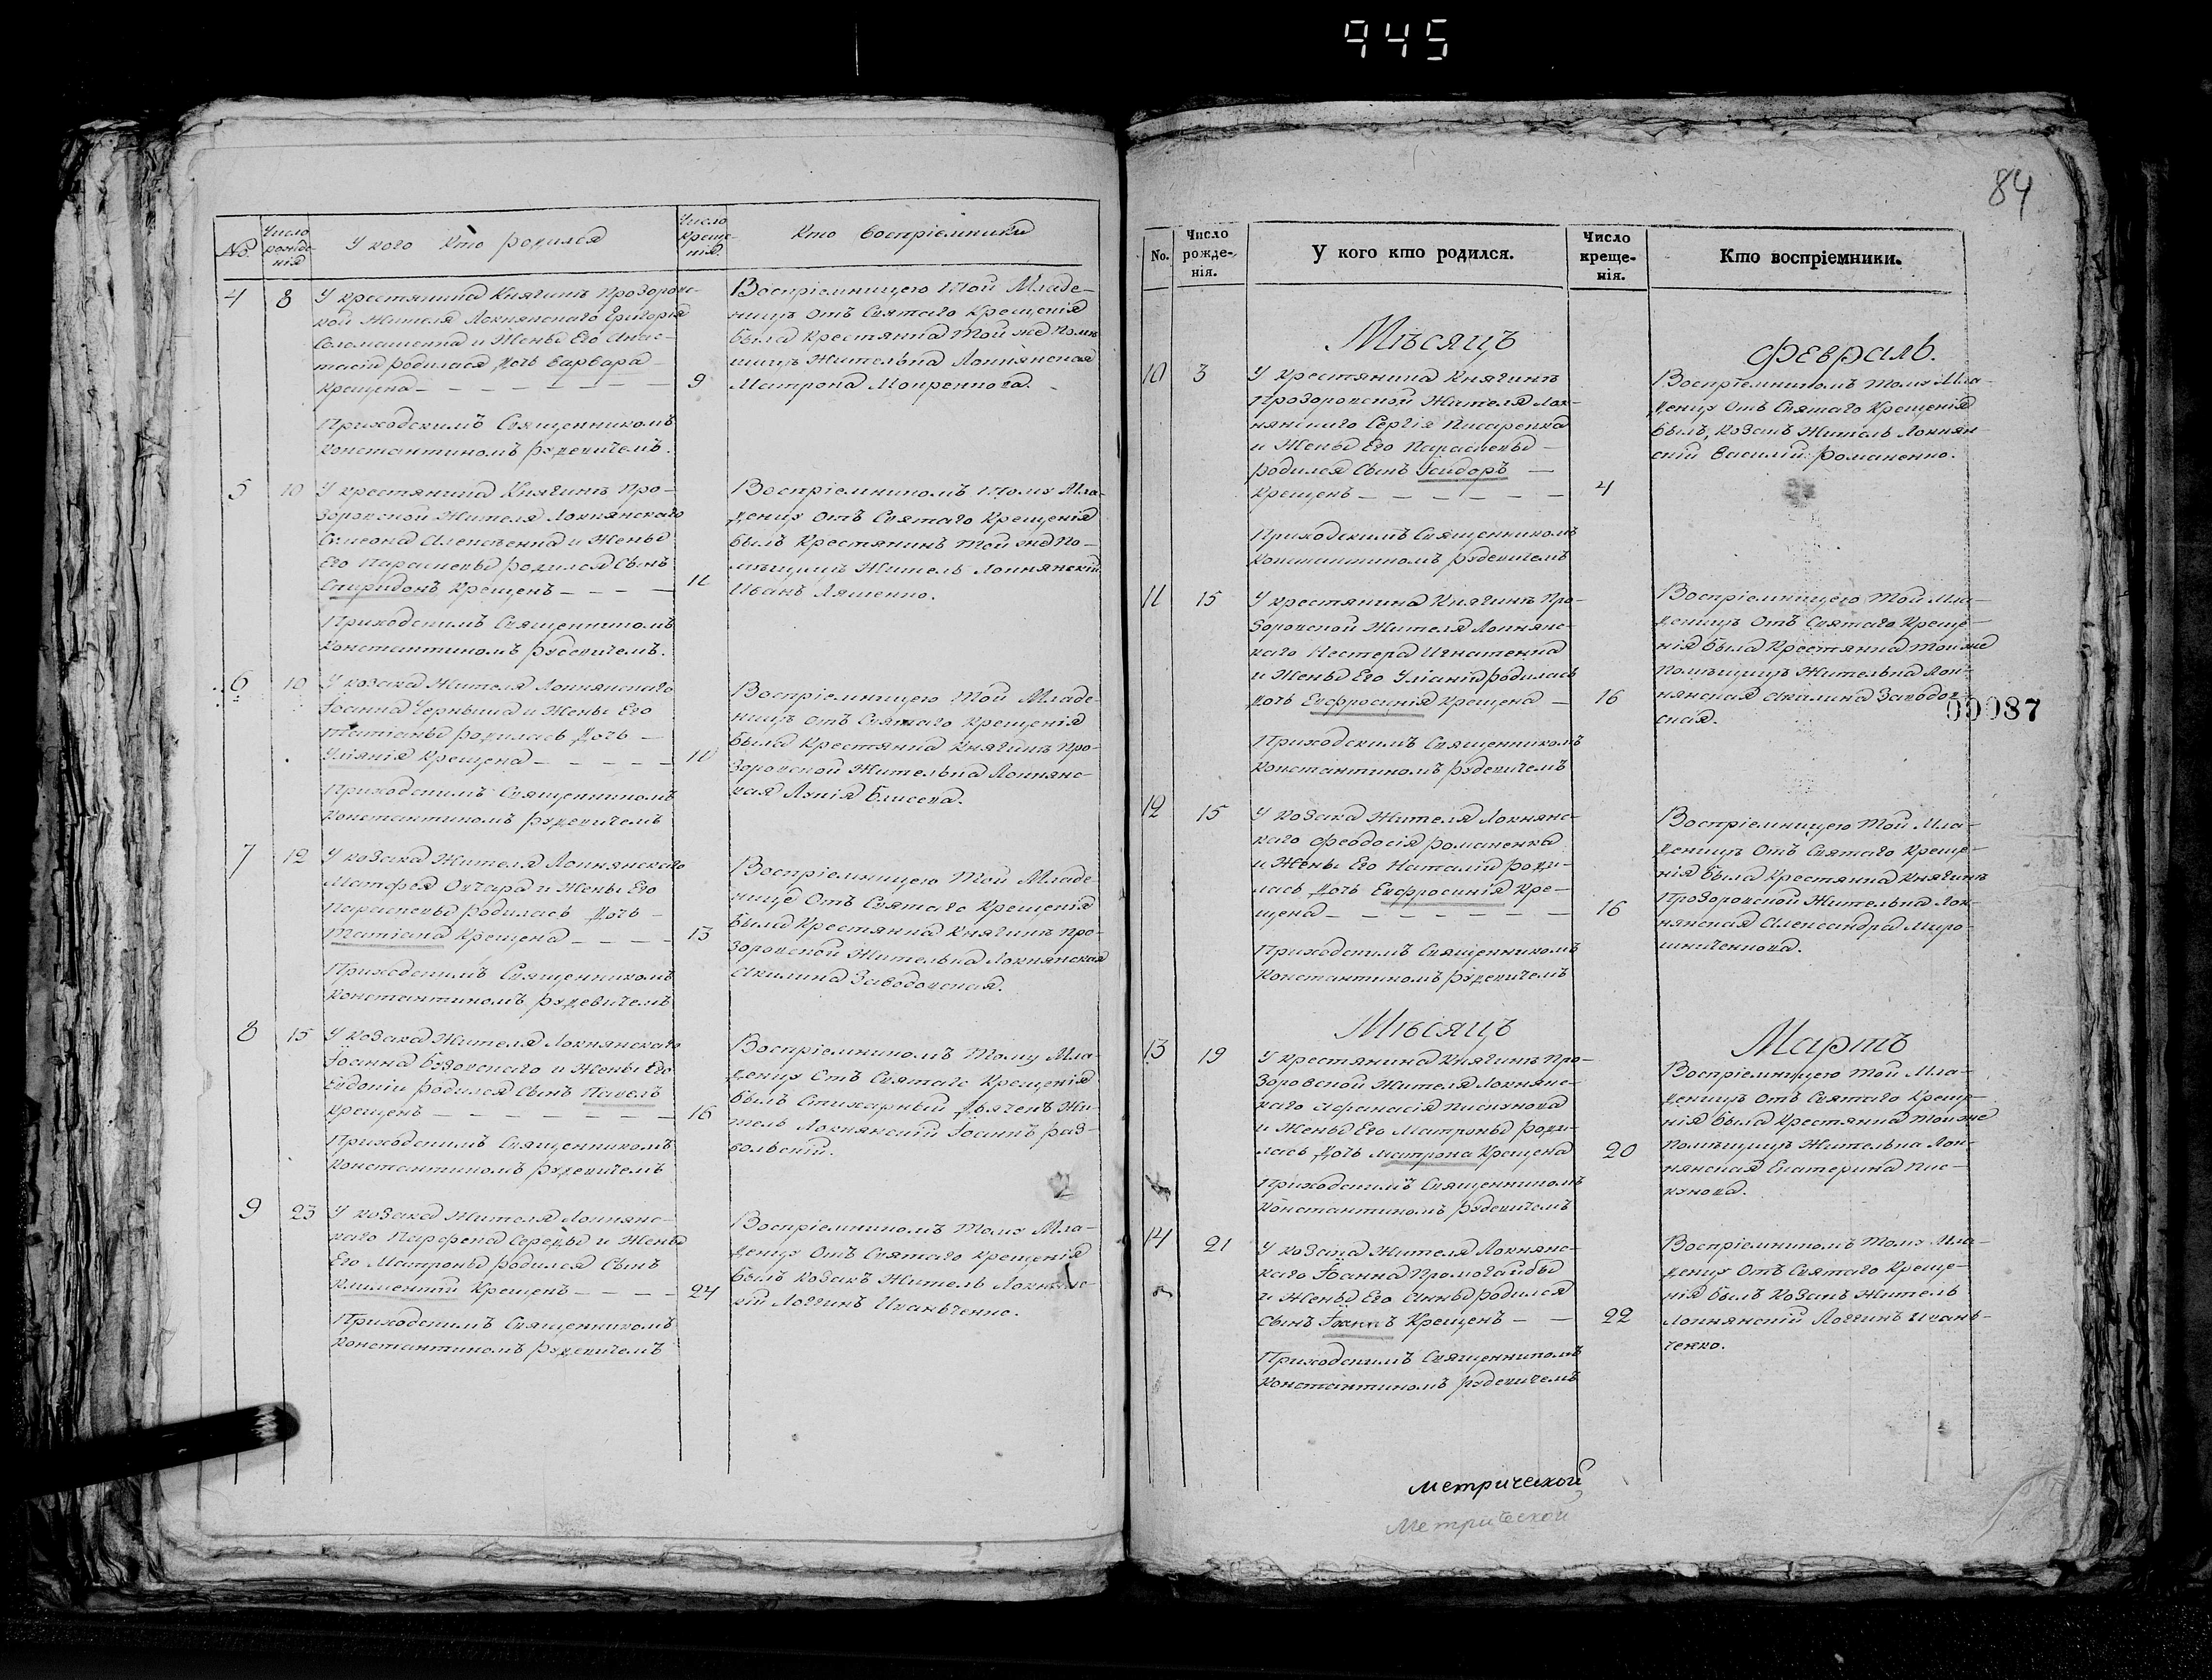 945
84
№.
Число рожде-нія
У кого Кто родился
Число Креще-нія.
Кто воспріемники
4
8
У крестянина Княгинѣ Прозоровс-
кой Жителя Локнянскаго Григорія
Соломашенка и Жены Его Анас-
тасіи родилася дочь Варвара
Крещена — — — — — — —
9
Приходскимъ Священникомъ
Константиномъ Рудевичемъ.
Воспріемницею той Младе-
ницѣ Отъ Святаго Крещенія
была Крестянка той же Помѣ-
щицѣ Жителька Локнянская
Матрона
5
10
У крестянина Княгинѣ Про-
зоровской Жителя Локнянскаго
Симеона Алексеенка и Жены
Его Параскевы родился Сынъ
Спиридонъ Крещенъ — — — —
11
Приходскимъ Священникомъ
Константиномъ Рудевичемъ.
Воспріемникомъ тому Мла-
денцу Отъ Святаго Крещенія
былъ Крестянинъ той же По-
мѣщицѣ Житель Локнянскій
Иванъ Ляшенко.
6
10
У козака Жителя Локнянскаго
Іоанна Черныша и Жены Его
Татіаны родилась дочь —
Уліянія Крещена — — — — —
10
Приходскимъ Священникомъ
Константиномъ Рудевичемъ
Воспріемницею той Младе-
ницѣ Отъ Святаго Крещенія
была Крестянка Княгинѣ Про-
зоровской Жителька Локнянс-
кая
7
12
У козака Жителя Локнянскаго
Матфея Овчара и Жены Его
Параскевы родилась дочь —
Татіана Крещена — — — —
13
Приходскимъ Священникомъ
Константиномъ Рудевичемъ
Воспріемницею той Младе-
ницѣ Отъ Святаго Крещенія
была Крестянка Княгинѣ Про-
зоровской Жителька Локнянская
Акилина Заводовская.
8
15
У козака Жителя Локнянскаго
Іоанна Бузовскаго и Жены Его
Евдокіи родился Сынъ Павелъ
Крещенъ — — — — — — —
16
Приходскимъ Священникомъ
Константиномъ Рудевичемъ
Воспріемникомъ тому Мла-
денцу Отъ Святаго Крещенія
былъ Стихарный Дьячекъ Жи-
тель Локнянскій Іоаннъ Раз-
сольскій.
9
23
У козака Жителя Локнянс-
каго Парфена Середы и Жены
Его Матроны родился Сынъ
Климентій Крещенъ — — — —
24
Приходскимъ Священникомъ
Константиномъ Рудевичемъ
Воспріемникомъ тому Мла-
денцу Отъ Святаго Крещенія
былъ козакъ Житель Локнянс-
кій Логгинъ Иваньченко.
No.
Число рожде-нія.
У кого кто родился.
Число креще-нія.
Кто воспріемники.
Мѣсяцъ
Февраль.
10
3
У крестянина Княгинѣ
Прозоровской Жителя Лок-
нянскаго Сергія Писаренка
и Жены Его Параскевы —
родился Сынъ Ісидоръ —
Крещенъ — — — — — —
4
Приходскимъ Священникомъ
Константиномъ Рудевичемъ
Воспріемникомъ тому Мла-
денцу Отъ Святаго Крещенія
былъ, козакъ Житель Локнян-
скій Василій Романенко.
11
15
У крестянина Княгинѣ Про-
зоровской Жителя Локнянс-
каго Нестера Игнатенка
и Жены Его Уліаніи родилась
дочь Евфросинія Крещена —
16
Приходскимъ Священникомъ
Константиномъ Рудевичемъ
Воспріемницею той Мла-
деницѣ Отъ Святаго Креще-
нія была Крестянка той же
Помѣщицѣ Жителька Лок-
нянская Акилина Заводов-
ская.
00087
12
15
У козака Жителя Локнянс-
каго Феодосія Романенка
и Жены Его Наталіи роди-
лась дочь Евфросинія Кре-
щена — — — — — — —
16
Приходскимъ Священникомъ
Константиномъ Рудевичемъ
Воспріемницею той Мла-
деницѣ Отъ Святаго Креще-
нія была Крестянка Княгинѣ
Прозоровской Жителька Лок-
нянская Александра Миро-
шниченкова.
Мѣсяцъ
Мартъ
13
19
У крестянина Княгинѣ Про-
зоровской Жителя Локнянс-
каго Афанасія Пискунова
и Жены Его Матроны роди-
лась дочь Матрона Крещена
20
Приходскимъ Священникомъ
Константиномъ Рудевичемъ
Воспріемницею той Мла-
деницѣ Отъ Святаго Креще-
нія была Крестянка той же
Помѣщицѣ Жителька Лок-
нянская Екатерина Пис-
кунова.
14
21
У козака Жителя Локнянс-
каго Іоанна Промогайбы
и Жены Его Анны родился
Сынъ Іоаннъ Крещенъ — —
22
Приходскимъ Священникомъ
Константиномъ Рудевичемъ
Воспріемникомъ тому Мла-
денцу Отъ Святаго Креще-
нія былъ козакъ Житель
Локнянскій Логгинъ Ивань-
ченко.
метрической
Метрической